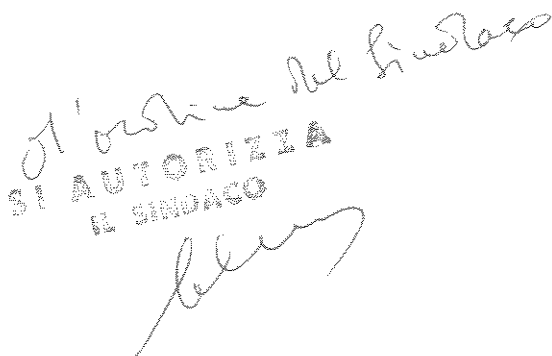 d'ordine del Sindaco
SI AUTORIZZA
IL SINDACO